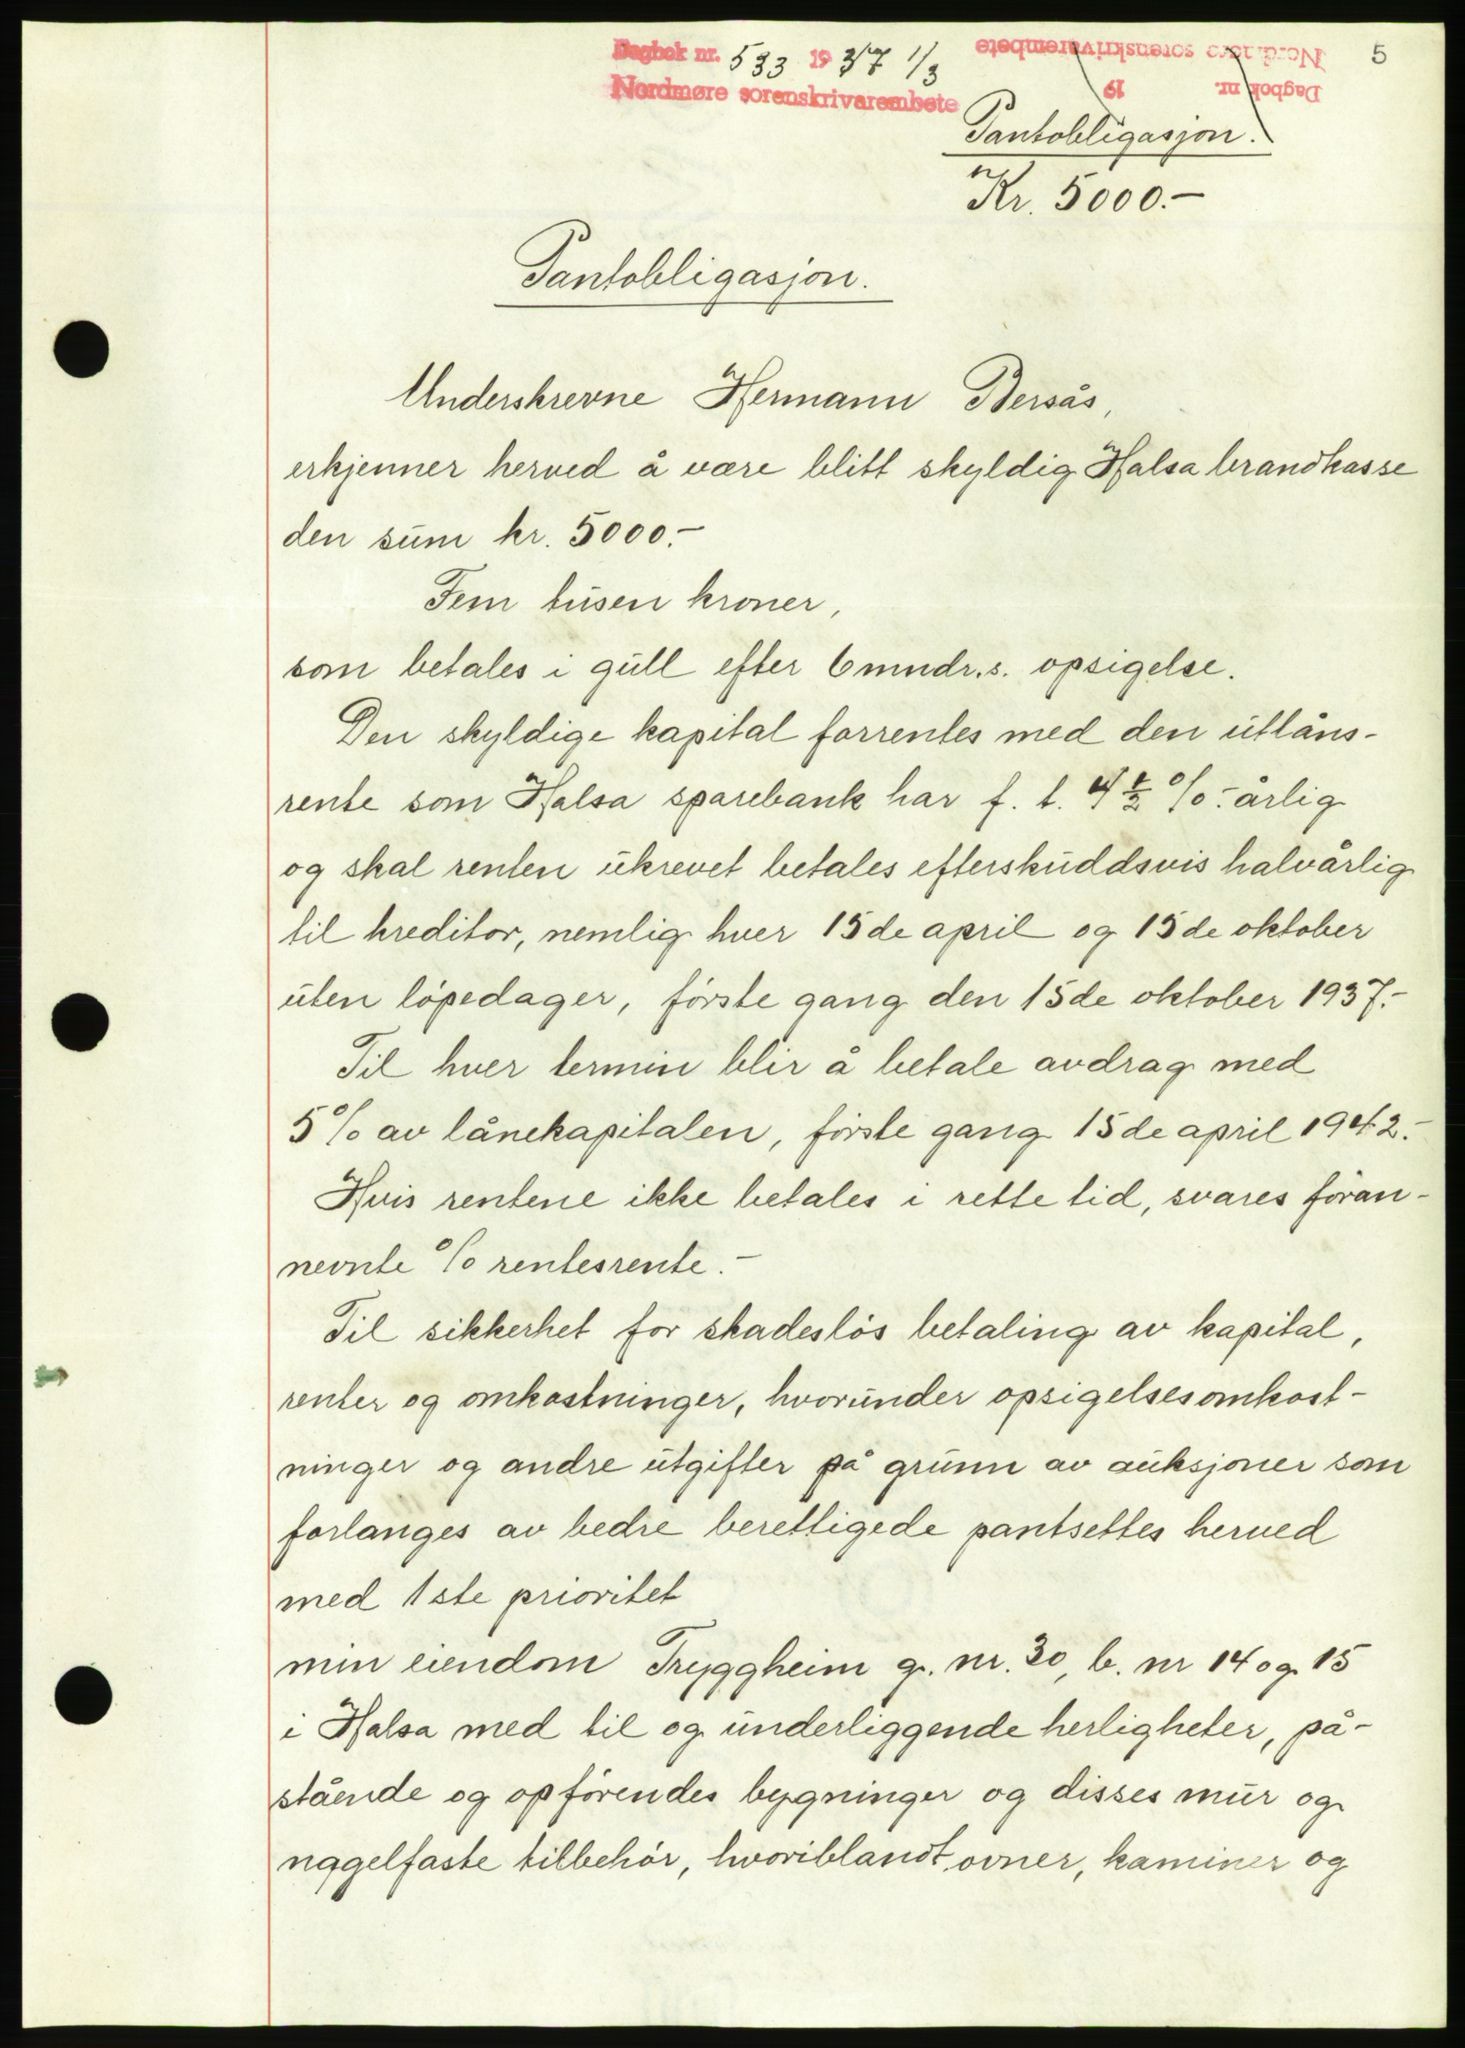 Dagbok nr. 533 1937 1/3
Nordmøre sorenskrivarembete
Nordmøre sorenskrivarembete
Dagbok nr. 19
5
Pantobligasjon.
Kr. 5000.-
Pantobligasjon.
Underskrevne Hermann Bersås,
erkjenner herved å være blitt skyldig Halsa brandkasse
den sum kr. 5000.-
Fem tusen kroner,
som betales i gull efter 6 mndr.s. opsigelse.
Den skyldige kapital forrentes med den utlåns-
rente som Halsa sparebank har f. t. 4 1/2 %.- årlig
og skal renten ukrevet betales efterskuddsvis halvårlig
til kreditor, nemlig hver 15de april og 15de oktober
uten løpedager, første gang den 15de oktober 1937.-
Til hver termin blir å betale avdrag med
5 % av lånekapitalen, første gang 15de april 1942.-
Hvis rentene ikke betales i rette tid, svares foran-
nevnte % rentesrente.-
Til sikkerhet for skadesløs betaling av kapital,
renter og omkostninger, hvorunder opsigelsesomkost-
ninger og andre utgifter på grunn av auksjoner som
forlanges av bedre berettigede pantsettes herved
med 1ste prioritet
min eiendom Tryggheim g. nr. 30, b. nr 14 og 15
i Halsa med til og underliggende herligheter, på-
stående og opførendes bygninger og disses mur og
naggelfaste tilbehør, hvoriblandt ovner, kaminer og